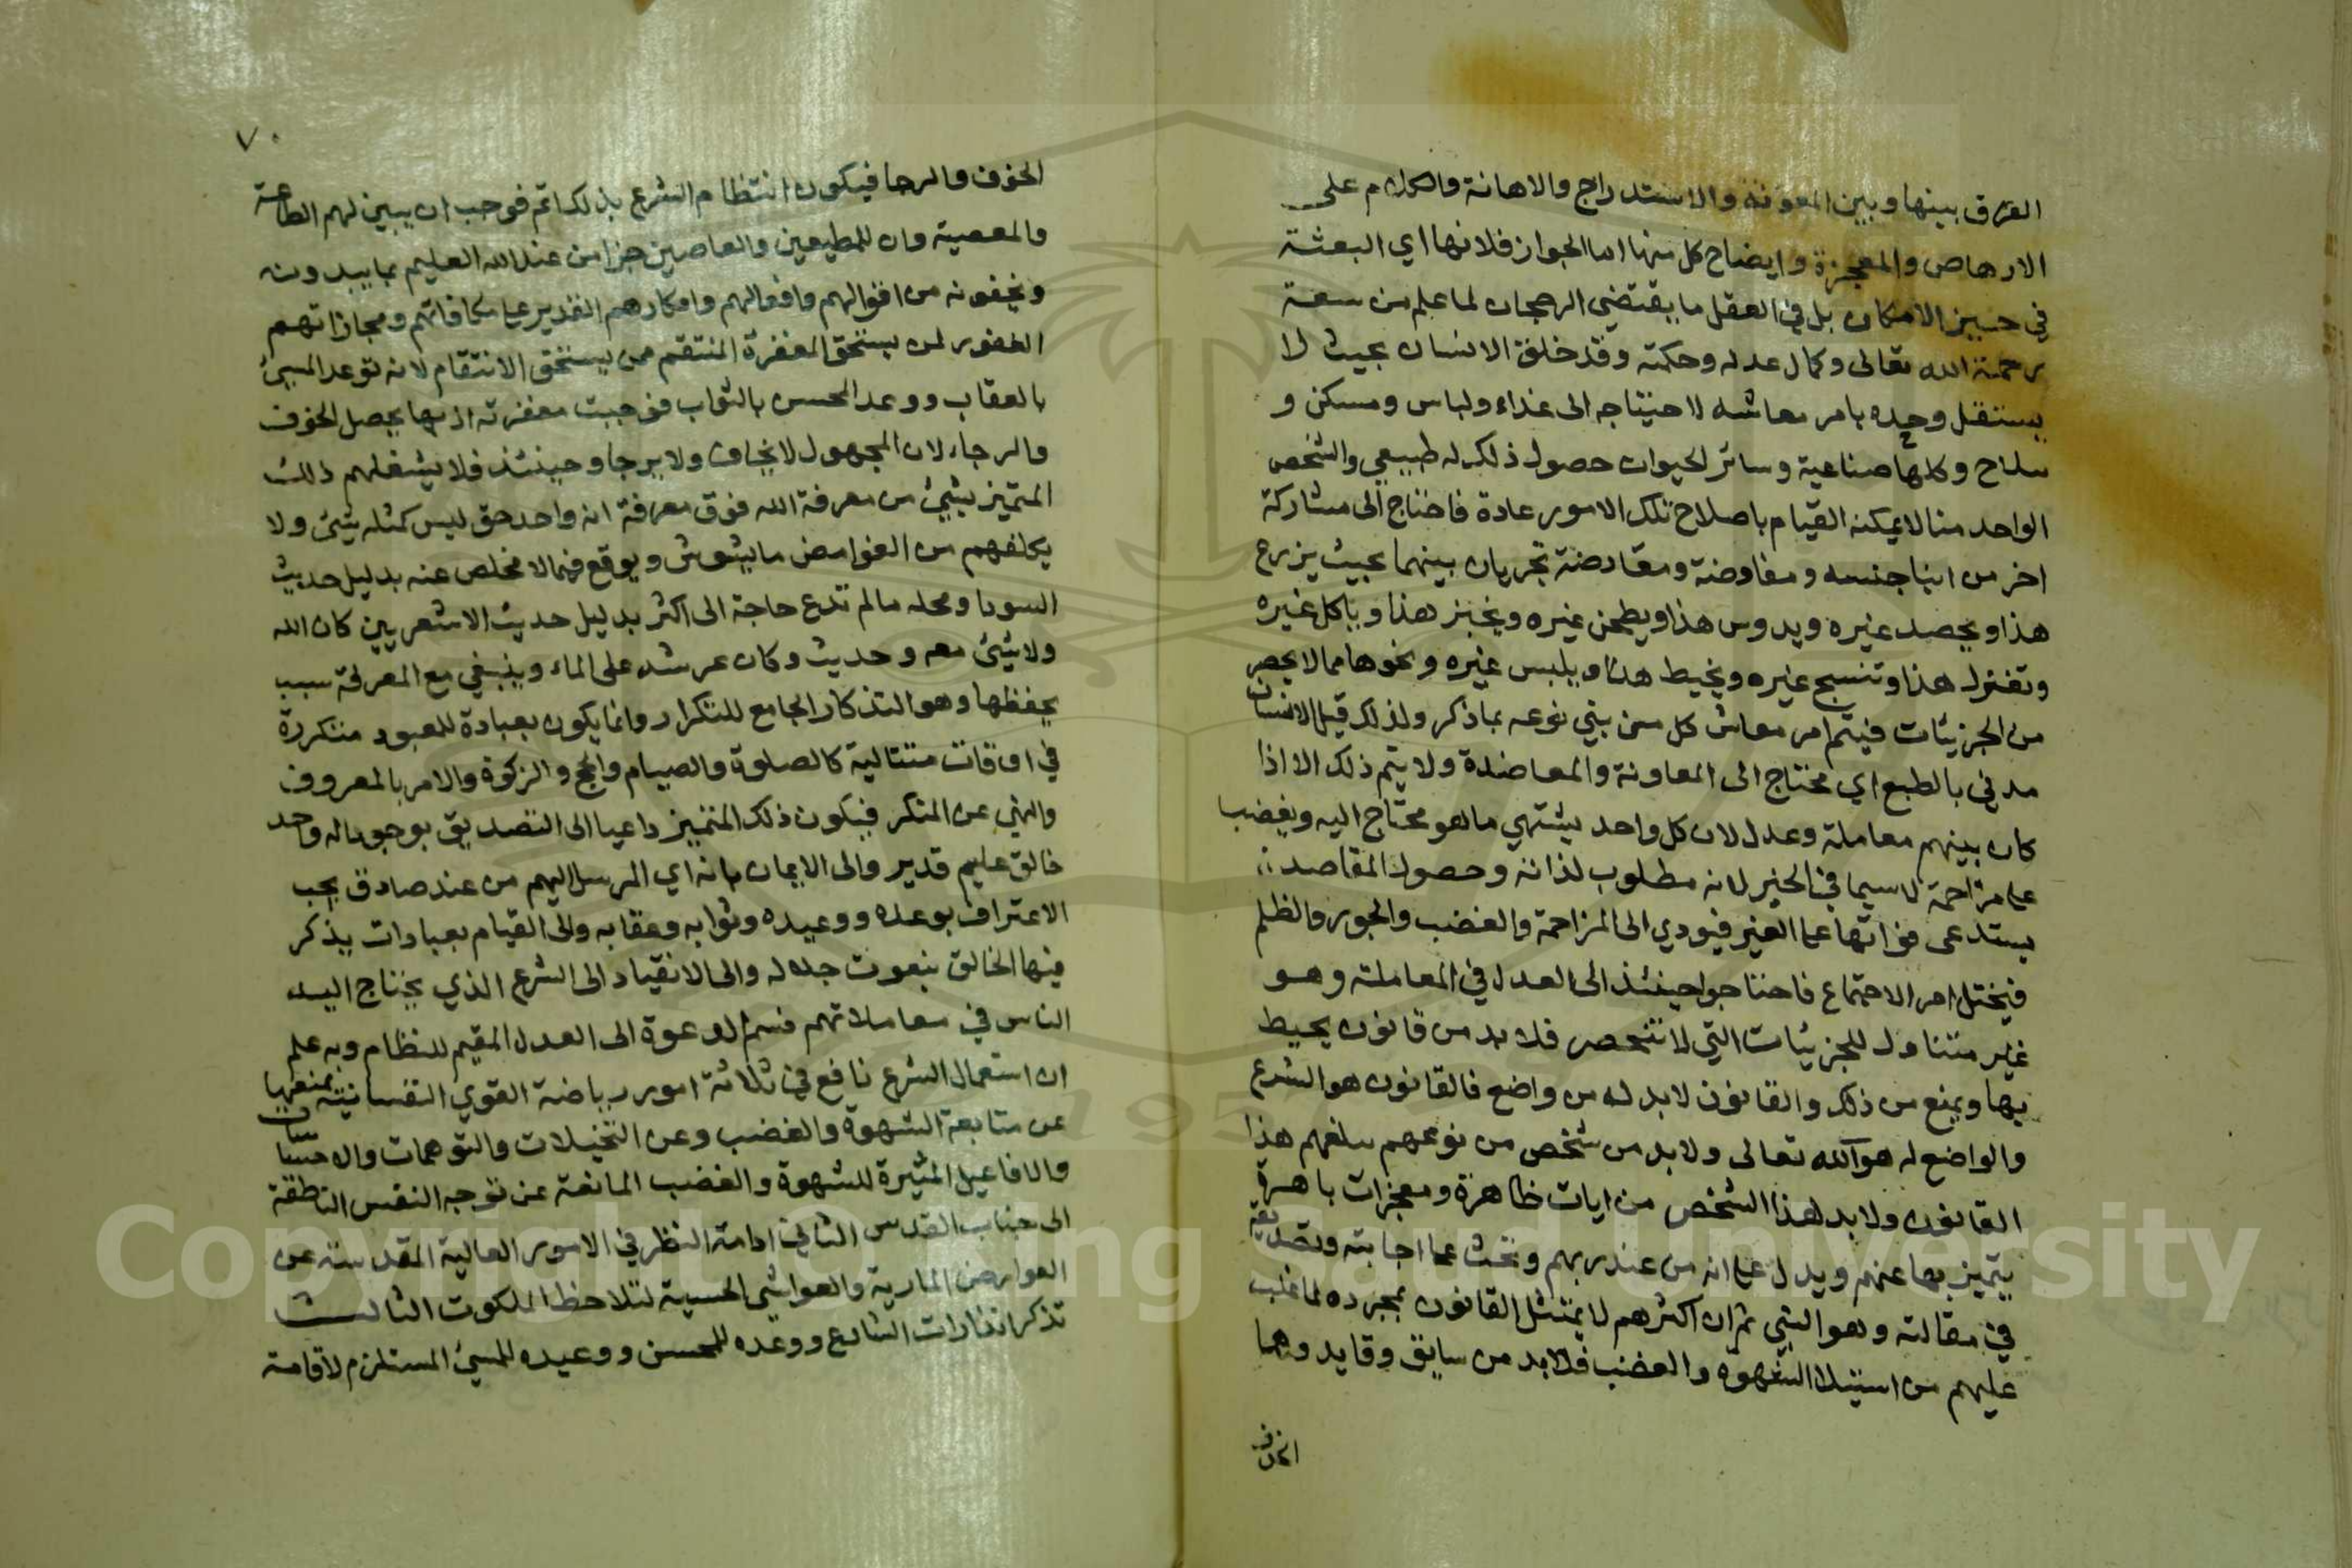 الفرق بينها وبين المعونة والاستدراج والاهانة والكلام على
الارهاص والمعجزة وايضاح كل منها اما الجواز فلانها اي البعثة
في حيز الامكان بل في العقل ما يقتضي الرجحان لما علم من سعة
رحمة الله تعالى وكمال عدله وحكمته وقد خلق الانسان بحيث لا
يستقل وحده بامر معاشه لاحتياجه الى غذاء ولباس ومسكن و
سلاح وكلها صناعية وسائر الحيوان حصول ذلك له طبيعي والشخص
الواحد منا لا يمكنه القيام باصلاح تلك الامور عادة فاحتاج الى مشاركة
اخر من ابنا جنسه ومفاوضة ومعارضة تجريان بينهما بحيث يزرع
هذا ويحصد غيره ويدوس هذا ويطحن غيره ويخبز هذا وياكل غيره
وتغزل هذا وتنسج غيره ويخيط هذا ويلبس غيره ونحوها مما لا يحصر
من الجزئيات فيتم امر معاش كل من بني نوعه بما ذكر ولذلك قيل الانسان
مدني بالطبع اي محتاج الى المعاونة والمعاضدة ولا يتم ذلك الا اذا
كان بينهم معاملة وعدل لان كل واحد يشتهي ما هو محتاج اليه ويغضب
على مزاحمة لا سيما في الخير لانه مطلوب لذاته وحصول المقاصد
يستدعى فواتها على الغير فيودي الى المزاحمة والغضب والجور والظلم
فيختل امر الاجتماع فاحتاجوا حينئذ الى العدل في المعاملة وهو
غير متناول للجزئيات التي لا تنحصر فلا بد من قانون يحيط
بها ويمنع من ذلك والقانون لا بد له من واضع فالقانون هو الشرع
والواضع له هو الله تعالى ولا بد من شخص من نوعهم يبلغهم هذا
القانون ولا بد لهذا الشخص من ايات ظاهرة ومعجزات باهرة
يتميز بها عنهم ويدل على انه من عند ربهم وتحث على اجابته وتصديقه
في مقالته وهو النبي ثم ان اكثرهم لا يمتثل القانون بمجرده لما غلب
عليهم من استيلا الشهوه والغضب فلا بد من سايق وقايد وهما
الخوف
٧٠
الخوف والرجا فيكون انتظام الشرع بذلك اتم فوجب ان يبين لهم الطاعة
والمعصية وان للمطيعين والعاصين جزا من عند الله العليم بما يبدونه
ويخفونه من اقوالهم وافعالهم وافكارهم القدير على مكافاتهم ومجازاتهم
الغفور لمن يستحق المغفرة المنتقم ممن يستحق الانتقام لانه توعد المسيئ
بالعقاب ووعد المحسن بالثواب فوجبت معرفته اذ بها يحصل الخوف
والرجاء لان المجهول لا يخاف ولا يرجا وحينئذ فلا يشغلهم ذلك
المتميز بشيئ من معرفة الله فوق معرفة انه واحد حق ليس كمثله شيئ ولا
يكلفهم من الغوامض ما يشوش ويوقع فيما لا مخلص عنه بدليل حديث
السودا ومحله ما لم تدع حاجة الى اكثر بدليل حديث الاشعريين كان الله
ولا شيئ معه وحديث وكان عرشه على الماء وينبغي مع المعرفة سبب
يحفظها وهو التذكار الجامع للتكرار وانما يكون بعبادة للمعبود متكررة
في اوقات متتالية كالصلوة والصيام والحج والزكوة والامر بالمعروف
والنهي عن المنكر فيكون ذلك المتميز داعيا الى التصديق بوجود اله واحد
خالق عليم قدير والى الايمان بانه اي المرسل اليهم من عند صادق يجب
الاعتراف بوعده ووعيده وثوابه وعقابه والى القيام بعبادات يذكر
فيها الخالق بنعوت جلاله والى الانقياد الى الشرع الذي يحتاج اليه
الناس في معاملاتهم فسم الدعوة الى العدل المقيم للنظام وبه علم
ان استعمال الشرع نافع في ثلاثة امور رياضة القوي النفسانية بمنعها
عن متابعة الشهوة والغضب وعن التخيلات والتوهمات والاحساسات
والافاعيل المثيرة للشهوة والغضب المانعة عن توجه النفس الناطقة
الى جناب القدس الثاني ادامة النظر في الامور العالية المقدسة عن
العوارض المادية والغواشي الحسية لتلاحظ الملكوت الثالث
تذكر انذارات الشارع ووعده للمحسن ووعيده للمسيئ المستلزم لاقامة
Copyright © King Saud University